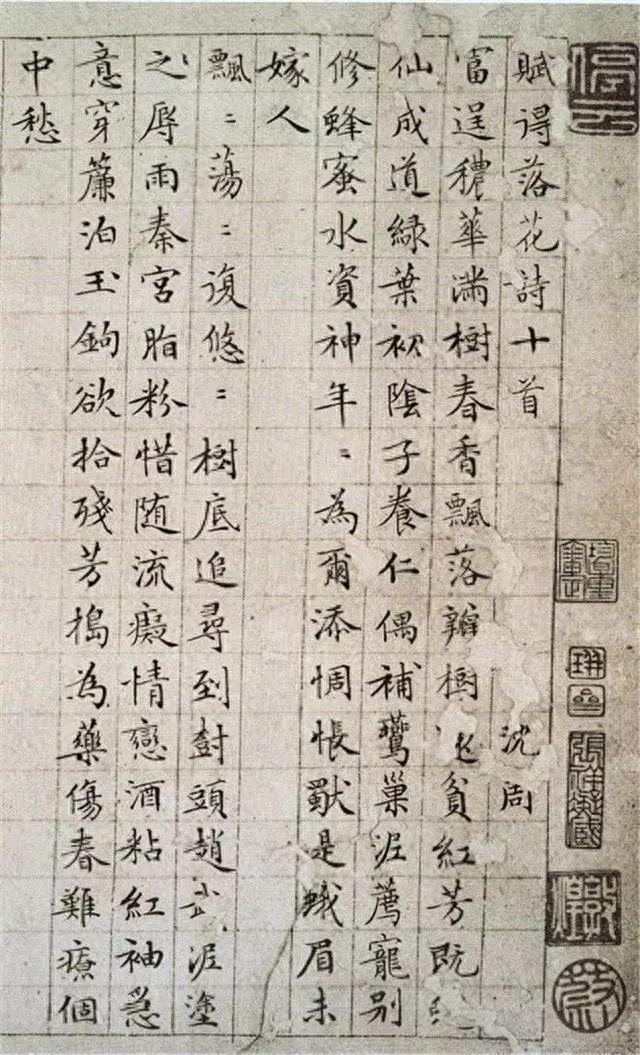 賦得落花詩十首 沈周
富逞穠華滿樹春香飄落瓣樹貧紅芳既
仙成道綠葉初陰子養仁偶補鸎巢泥薦寵別
修蜂蜜水資神年〻為爾添惆悵是蛾眉未
嫁人
飄〻蕩〻復悠〻樹底追尋到尌頭趙武泥塗
之辱雨秦宮脂粉惜随流癡情戀酒粘紅袖急
意穿簾泊玉鉤欲拾殘芳搗為藥傷春難療個
中愁
停雲